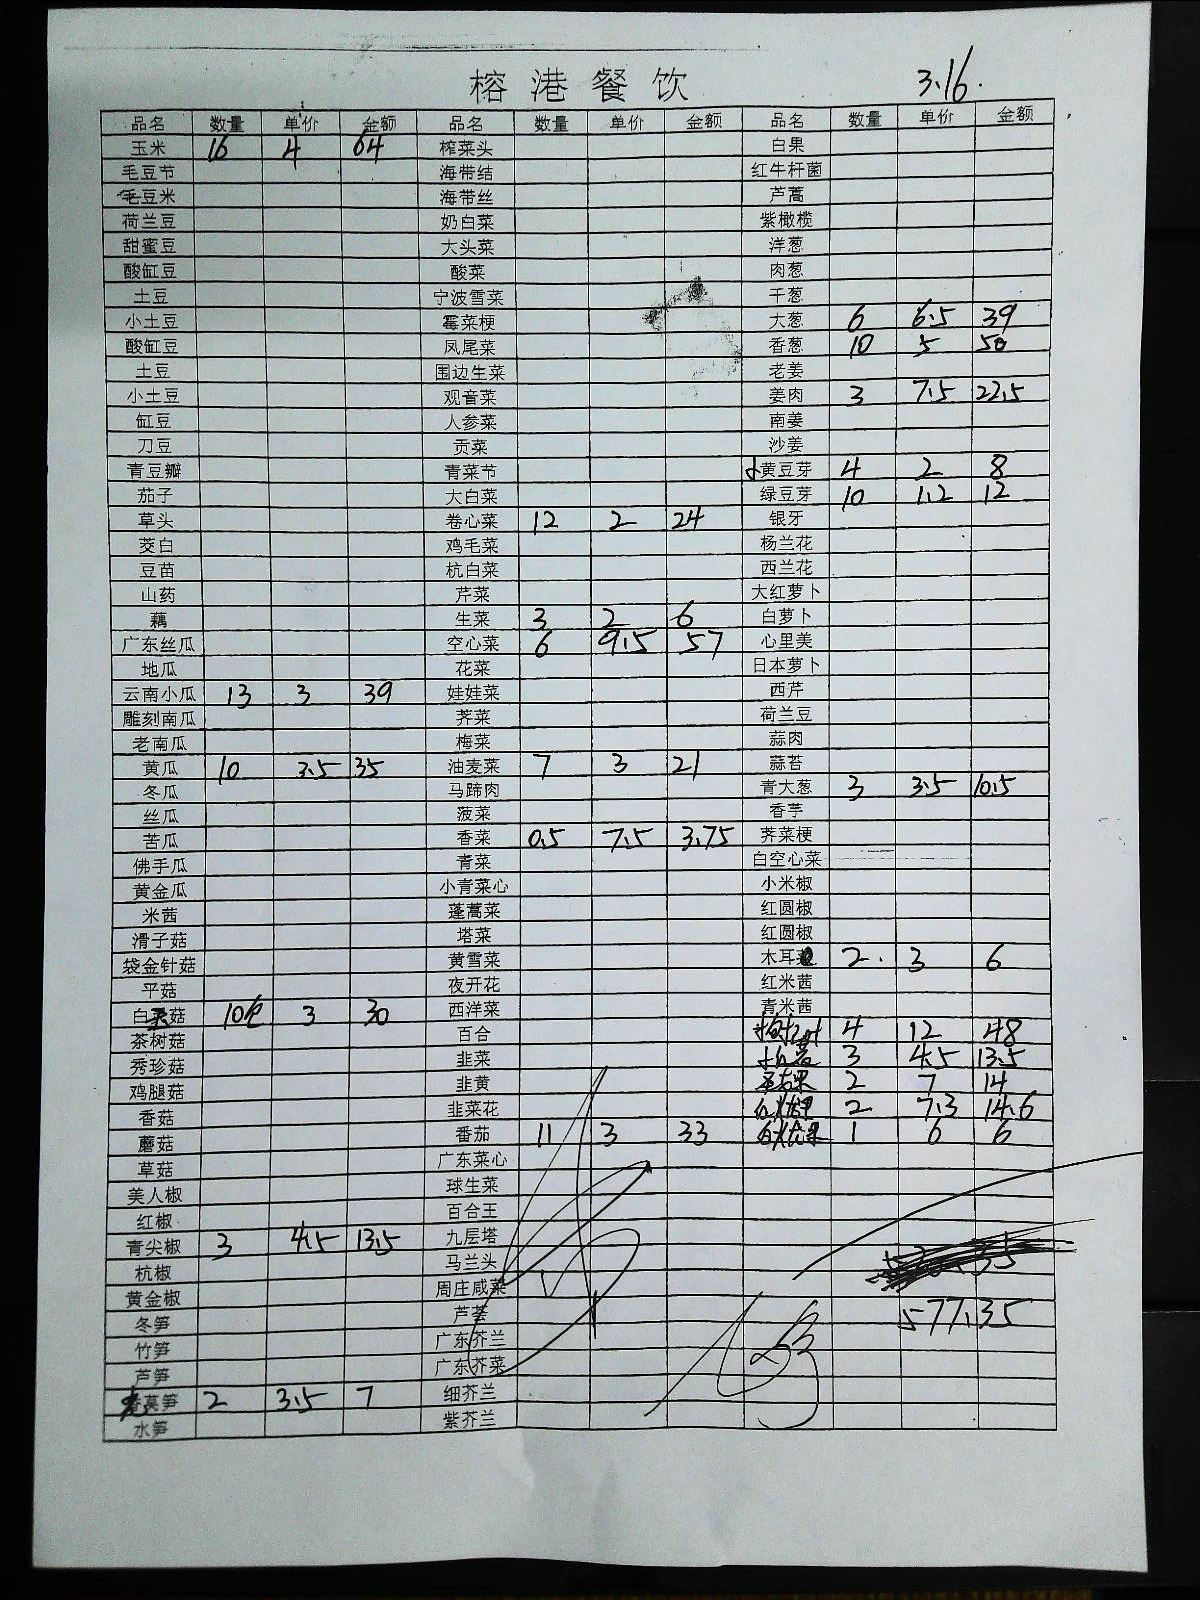 榕港餐饮 3.16.
品名 数量 单价 金额 品名 数量 单价 金额 品名 数量 单价 金额
玉米 16 4 64 榨菜头 白果
毛豆节 海带结 红牛杆菌
毛豆米 海带丝 芦蒿
荷兰豆 奶白菜 紫橄榄
甜蜜豆 大头菜 洋葱
酸缸豆 酸菜 肉葱
土豆 宁波雪菜 干葱
小土豆 霉菜梗 大葱 6 6.5 39
酸缸豆 凤尾菜 香葱 10 5 50
土豆 围边生菜 老姜
小土豆 观音菜 姜肉 3 7.5 22.5
缸豆 人参菜 南姜
刀豆 贡菜 沙姜
青豆瓣 青菜节 黄豆芽 4 2 8
茄子 大白菜 绿豆芽 10 1.2 12
草头 卷心菜 12 2 24 银牙
茭白 鸡毛菜 杨兰花
豆苗 杭白菜 西兰花
山药 芹菜 大红萝卜
藕 生菜 3 2 6 白萝卜
广东丝瓜 空心菜 6 9.5 57 心里美
地瓜 花菜 日本萝卜
云南小瓜 13 3 39 娃娃菜 西芹
雕刻南瓜 荠菜 荷兰豆
老南瓜 梅菜 蒜肉
黄瓜 10 3.5 35 油麦菜 7 3 21 蒜苔
冬瓜 马蹄肉 青大葱 3 3.5 10.5
丝瓜 菠菜 香芋
苦瓜 香菜 0.5 7.5 3.75 荠菜梗
佛手瓜 青菜 白空心菜
黄金瓜 小青菜心 小米椒
米茜 蓬蒿菜 红圆椒
滑子菇 塔菜 红圆椒
袋金针菇 黄雪菜 木耳菜 2 3 6
平菇 夜开花 红米茜
白灵菇 10包 3 30 西洋菜 青米茜
茶树菇 百合 4 12 48
秀珍菇 韭菜 3 4.5 13.5
鸡腿菇 韭黄 2 7 14
香菇 韭菜花 2 7.3 14.6
蘑菇 番茄 11 3 33 1 6 6
草菇 广东菜心
美人椒 球生菜
红椒 百合王
青尖椒 3 4.5 13.5 九层塔
杭椒 马兰头
黄金椒 周庄咸菜
冬笋 芦荟 577.35
竹笋 广东芥兰
芦笋 广东芥菜
莴笋 2 3.5 7 细芥兰
水笋 紫芥兰